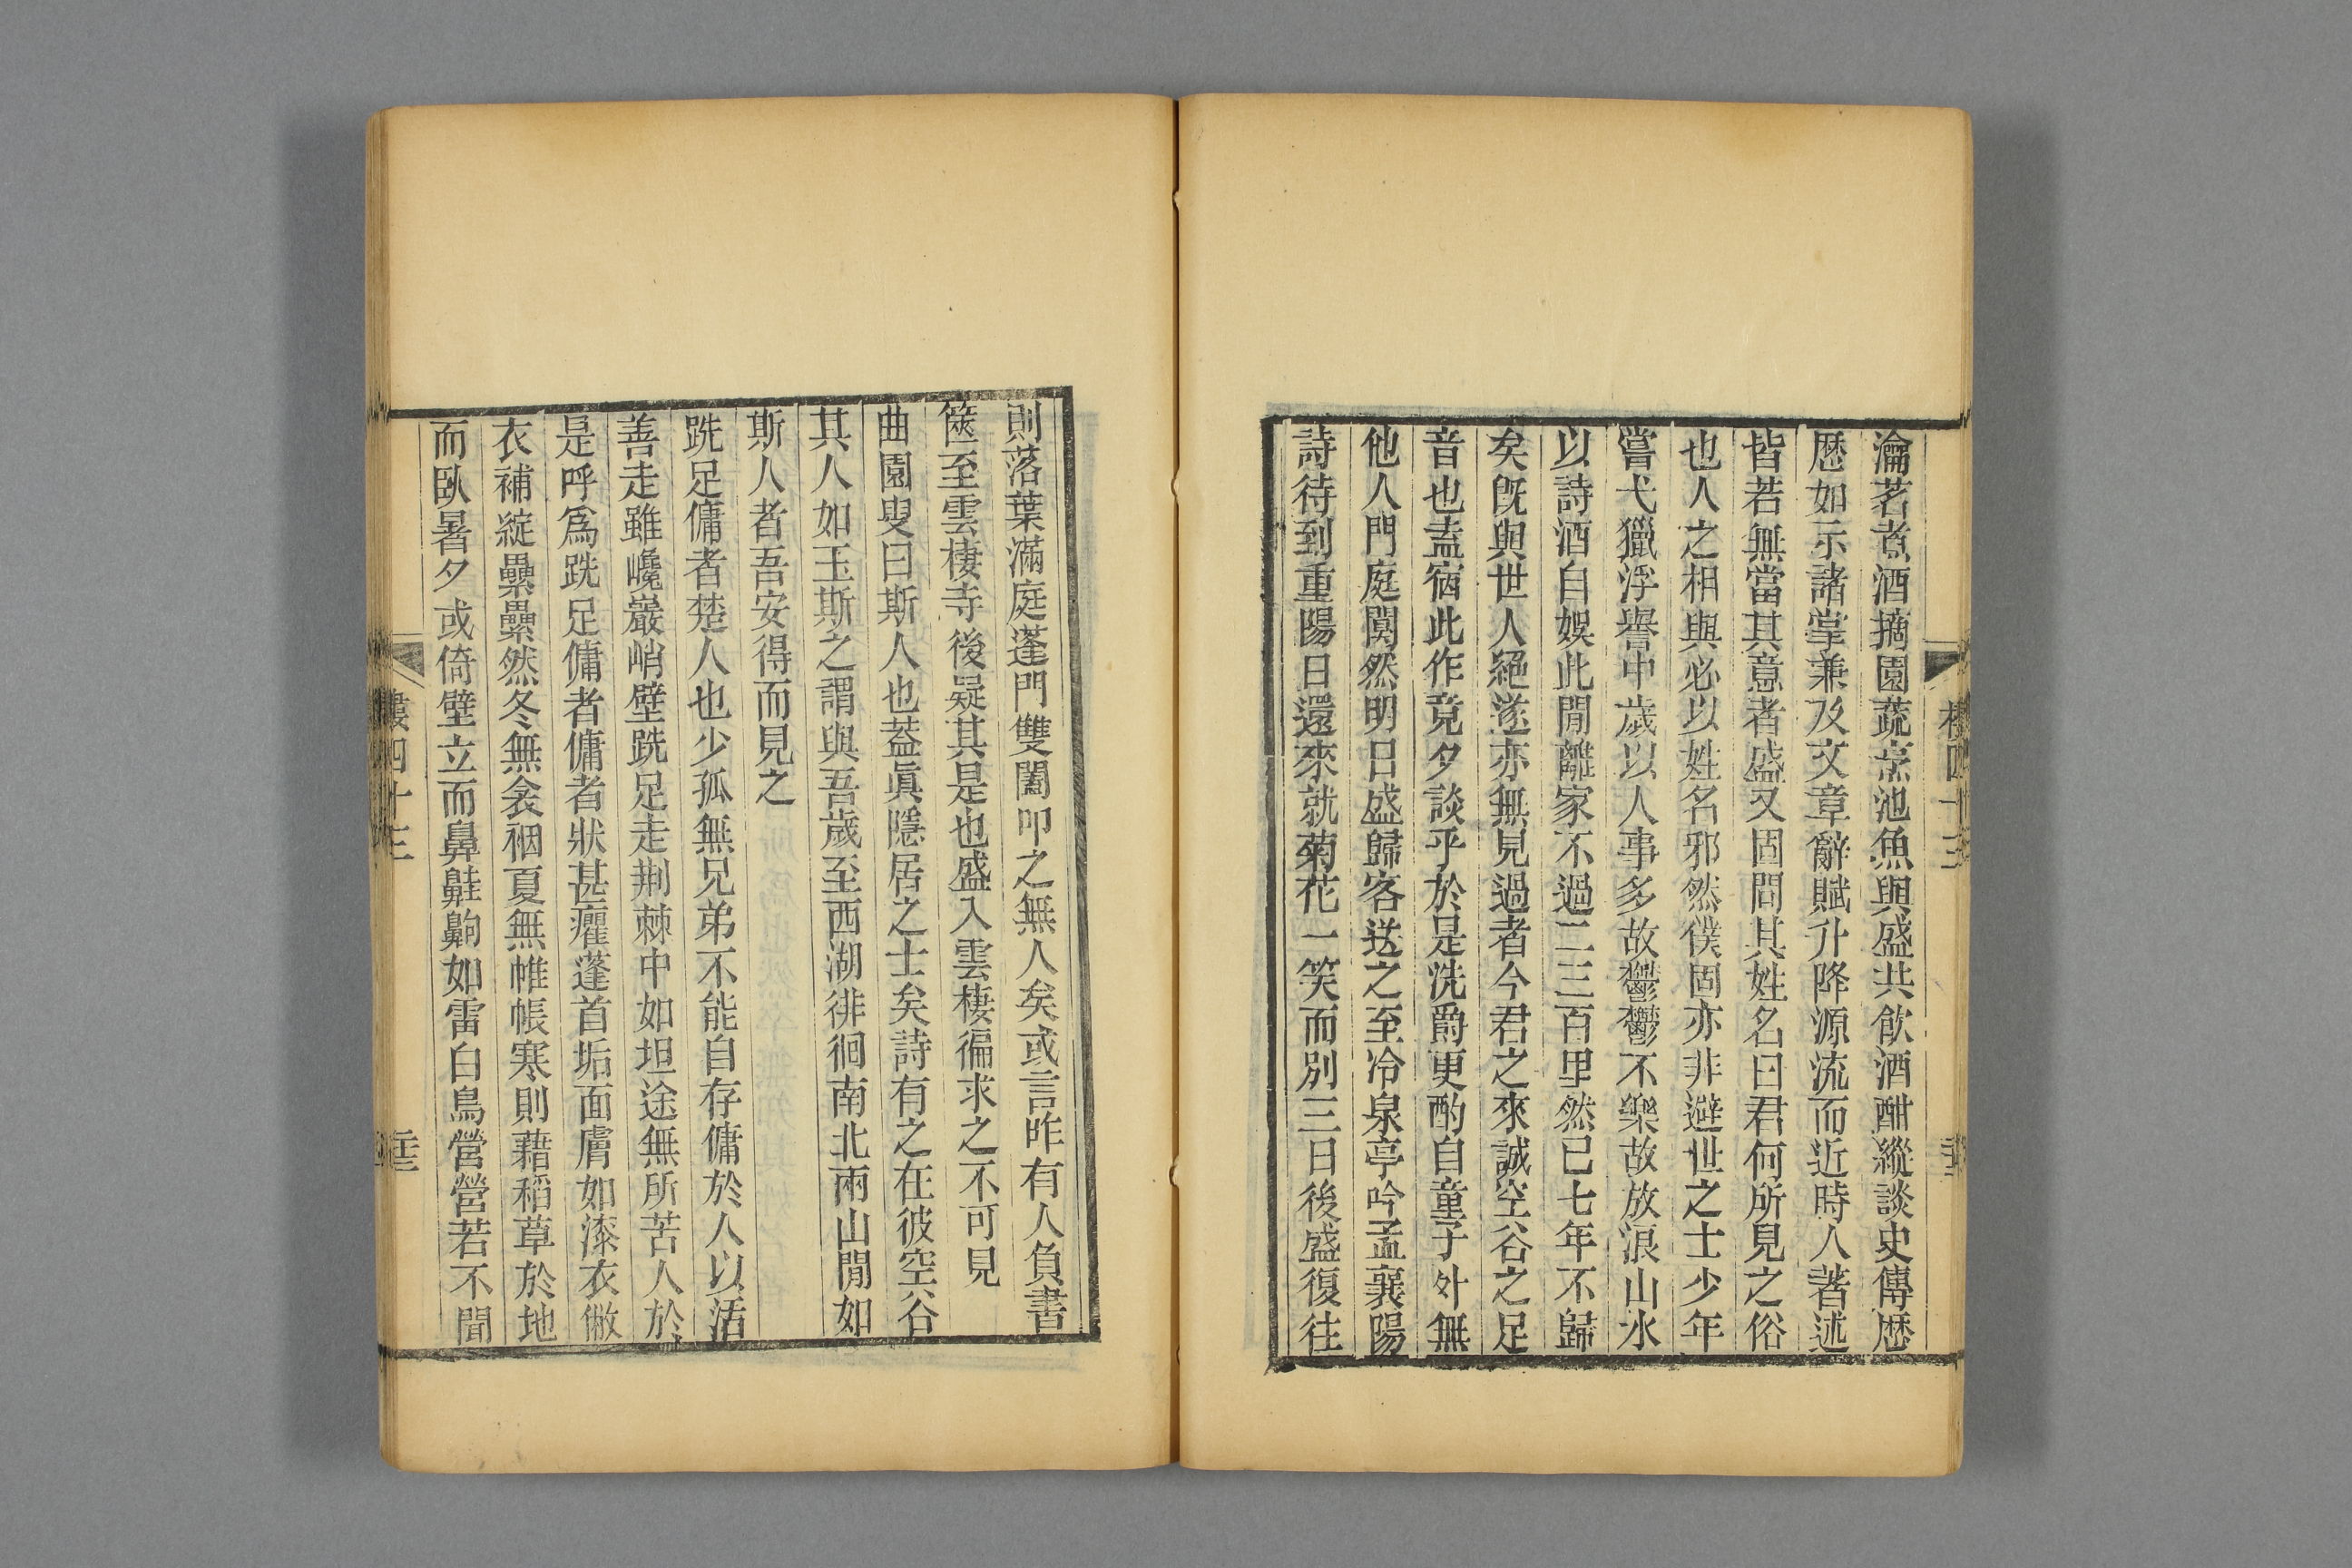 瀹茗煮酒摘園蔬烹池魚與盛共飲酒酣縱談史傳歴
歴如示諸掌兼及文章辭賦升降源流而近時人著述
皆若無當其意者盛又固問其姓名曰君何所見之俗
也人之相與必以姓名邪然僕固亦非避世之士少年
嘗弋獵浮譽中歲以人事多故鬱鬱不樂故放浪山水
以詩酒自娛此閒離家不過二三百里然已七年不歸
矣旣與世人絕遂亦無見過者今君之來誠空谷之足
音也盍宿此作竟夕談乎於是洗爵更酌自童子外無
他人門庭闃然明日盛歸客送之至冷泉亭吟孟襄陽
詩待到重陽日還來就菊花一笑而別三日後盛復往
則落葉滿庭蓬門雙闔叩之無人矣或言昨有人負書
篋至雲棲寺後疑其是也盛入雲棲徧求之不可見
曲園叟曰斯人也葢眞隱居之士矣詩有之在彼空谷
其人如玉斯之謂與吾歲至西湖徘徊南北兩山閒如
斯人者吾安得而見之
跣足傭者楚人也少孤無兄弟不能自存傭於人以活
善走雖巉巖峭壁跣足走荆棘中如坦途無所苦人於
是呼爲跣足傭者傭者狀甚癯蓬首垢面膚如漆衣敝
衣補綻纍纍然冬無衾裀夏無帷帳寒則藉稻草於地
而臥暑夕或倚壁立而鼻鼾齁如雷白鳥營營若不聞
樓四十三